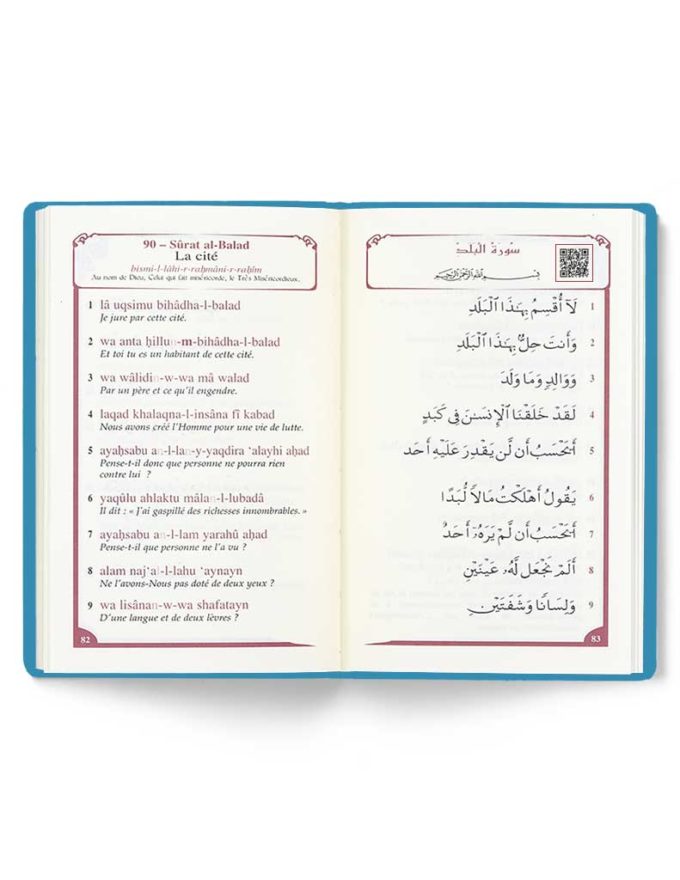 90 – Sûrat al-Balad
La cité
bismi-l-lâhi-r-raḥmâni-r-raḥîm
Au nom de Dieu, Celui qui fait miséricorde, le Très Miséricordieux.
1 lâ uqsimu bihâdha-l-balad
Je jure par cette cité.
2 wa anta ḥillu n-m-bihâdha-l-balad
Et toi tu es un habitant de cette cité.
3 wa wâlidin-w-wa mâ walad
Par un père et ce qu'il engendre.
4 laqad khalaqna-l-insâna fî kabad
Nous avons créé l'Homme pour une vie de lutte.
5 ayaḥsabu an-l-lan-y-yaqdira ‘alayhi aḥad
Pense-t-il donc que personne ne pourra rien
contre lui ?
6 yaqûlu ahlaktu mâlan-l-lubadâ
Il dit : « J'ai gaspillé des richesses innombrables. »
7 ayaḥsabu an-l-lam yarahû aḥad
Pense-t-il que personne ne l'a vu ?
8 alam naj‘al-l-lahu ‘aynayn
Ne l'avons-Nous pas doté de deux yeux ?
9 wa lisânan-w-wa shafatayn
D'une langue et de deux lèvres ?
82
سُورَةُ الْبَلَدِ
بِسْمِ اللَّهِ الرَّحْمَٰنِ الرَّحِيمِ
لَآ أُقْسِمُ بِهَٰذَا ٱلْبَلَدِ 1
وَأَنتَ حِلٌّۢ بِهَٰذَا ٱلْبَلَدِ 2
وَوَالِدٍ وَمَا وَلَدَ 3
لَقَدْ خَلَقْنَا ٱلْإِنسَٰنَ فِى كَبَدٍ 4
أَيَحْسَبُ أَن لَّن يَقْدِرَ عَلَيْهِ أَحَدٌ 5
يَقُولُ أَهْلَكْتُ مَالًا لُّبَدًا 6
أَيَحْسَبُ أَن لَّمْ يَرَهُۥٓ أَحَدٌ 7
أَلَمْ نَجْعَل لَّهُۥ عَيْنَيْنِ 8
وَلِسَانًا وَشَفَتَيْنِ 9
83